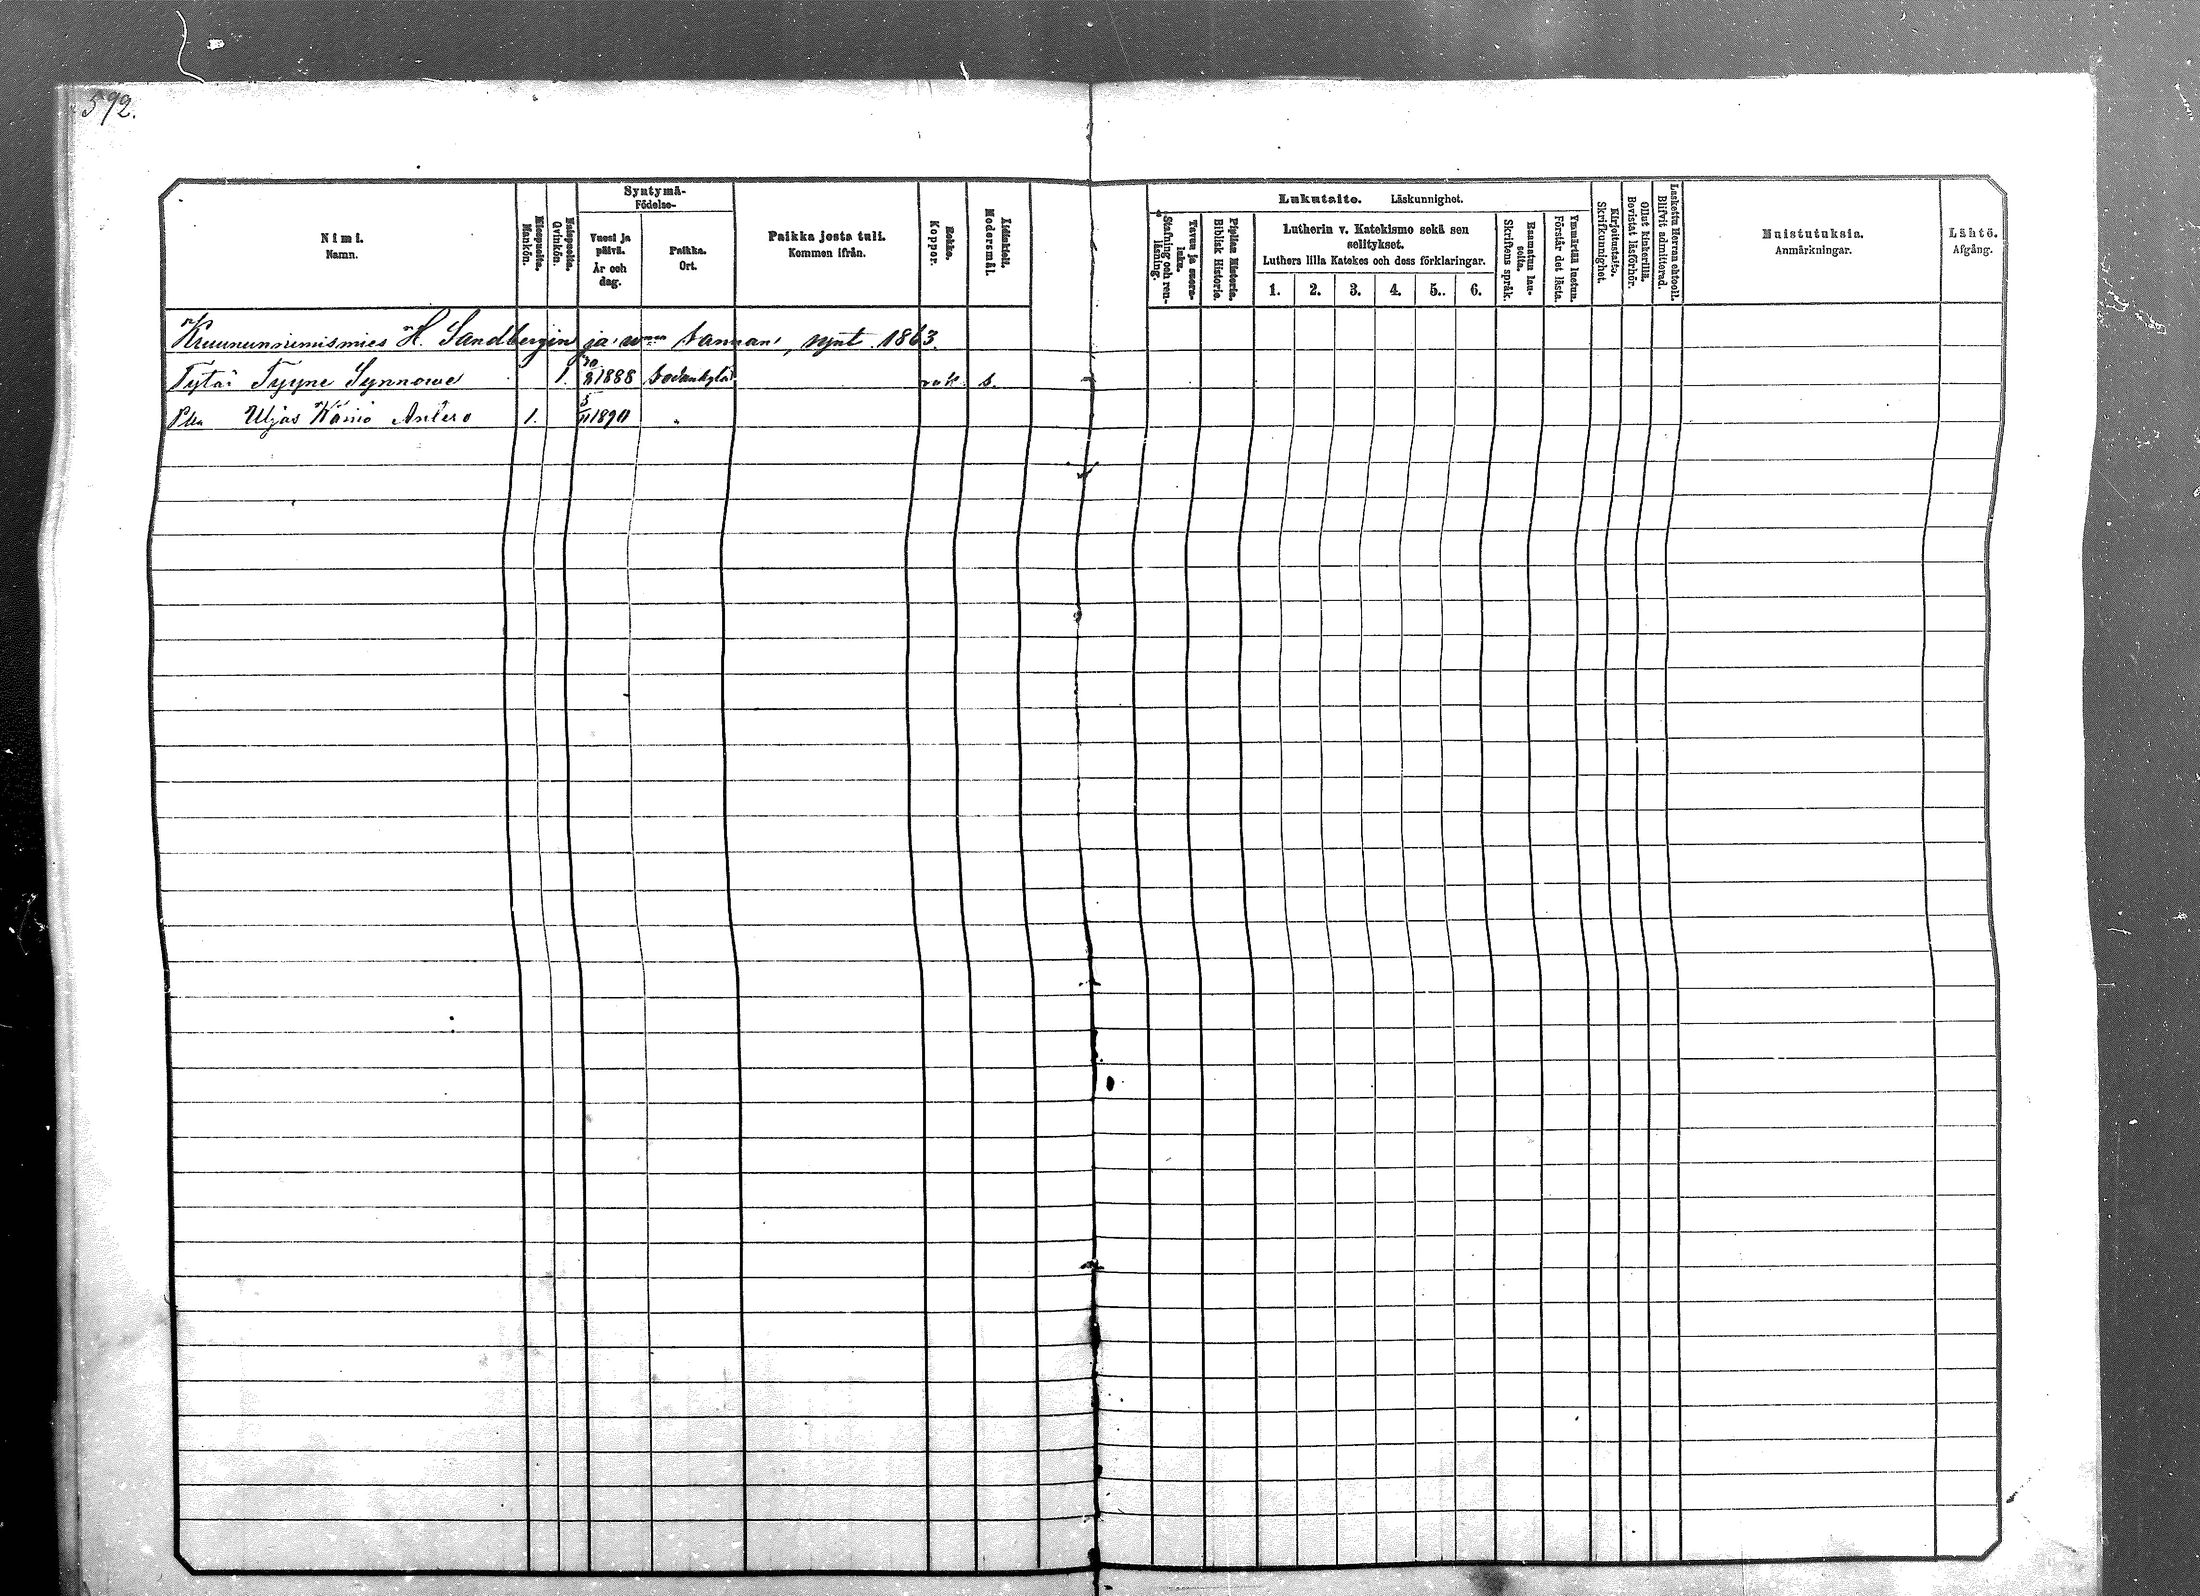 592.
Syntymä-
Födelse-
Nimi.
Namn.
Miespuolia.
Mankön.
Naispuolia.
Qvinkön.
Vuosi ja
päivä.
År och
dag.
Paikka.
Ort.
Paikka josta tuli.
Kommen ifrån.
Rokko.
Koppor.
Äidinkieli.
Modersmål.
Lukutaito. Läskunnighet.
Tavuu ja suora-
luku.
Stafning och ren-
läsning.
Piplian Historia.
Biblisk Historie.
Lutherin v. Katekismo sekä sen
selitykset.
Luthers lilla Katekes och dess förklaringar.
1. 2. 3. 4. 5. 6.
Raamatun lau-
seita.
Skriftens språk.
Ymmärtää luetun.
Förstår det lästa.
Kirjoitustaito.
Skrifkunnighet.
Ollut kinkerillä.
Bevistat läsförhör.
Laskettu Herran ehtooll.
Blifvit admitterad.
Muistutuksia.
Anmärkningar.
Lähtö.
Afgång.
Kruununnimismies H. Sandbergin ja vaan , synt. 1863.
Tytär Tyyne Synnowe 1. 1888 Sodankylä rok s.
Pka Uljas Wäinö Antero 1. 5